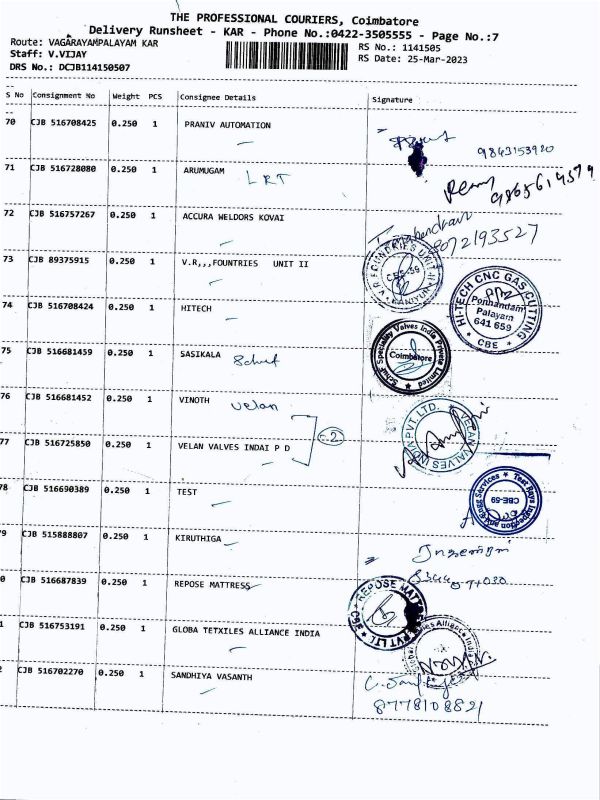 THE PROFESSIONAL COURIERS, Coimbatore
Delivery Runsheet - KAR - Phone No.:0422-3505555 - Page No.:7
Route: VAGARAYAMPALAYAM KAR
RS No.: 1141505
Staff: V.VIJAY
RS Date: 25-Mar-2023
DRS No.: DCJB114150507
S No Consignment No Weight PCS Consignee Details Signature
70 CJB 516708425 0.250 1 PRANIV AUTOMATION
9843153920
71 CJB 516728080 0.250 1 ARUMUGAM LRT
72 CJB 516757267 0.250 1 ACCURA WELDORS KOVAI
8072193527
73 CJB 89375915 0.250 1 V.R,,,FOUNTRIES UNIT II
V.R FOUNDRIES UNIT II
CBE-59
KANIYUR
74 CJB 516708424 0.250 1 HITECH
HI-TECH CNC GAS CUTTING
Ponnandam
Palayam
641 659
* CBE *
75 CJB 516681459 0.250 1 SASIKALA Schuf
Schuf Speciality Valves India Private Limited
Coimbatore
76 CJB 516681452 0.250 1 VINOTH velan
2
VELAN VALVES INDIA PVT LTD.
77 CJB 516725850 0.250 1 VELAN VALVES INDAI P D
78 CJB 516690389 0.250 1 TEST
Test Rays Inspection and Engg Services
CBE-59
79 CJB 515888807 0.250 1 KIRUTHIGA
0 CJB 516687839 0.250 1 REPOSE MATTRESS
REPOSE MATTRESS PVT LTD
1 CJB 516753191 0.250 1 GLOBA TETXILES ALLIANCE INDIA
2 CJB 516702270 0.250 1 SANDHIYA VASANTH
8778108821